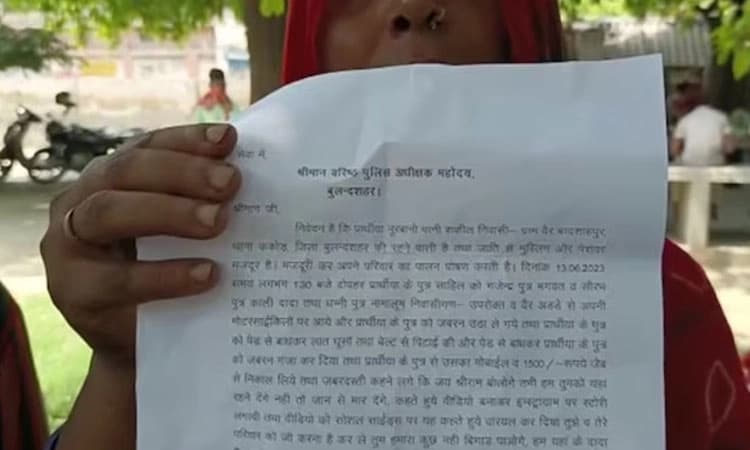 सेवा में,
श्रीमान वरिष्ठ पुलिस अधीक्षक महोदय,
बुलन्दशहर।
श्रीमान जी,
निवेदन है कि प्रार्थीया नुरबानो पत्नी शकील निवासी– ग्राम वैर बादशाहपुर,
थाना ककोड, जिला बुलन्दशहर की रहने वाली है तथा जाति से मुस्लिम और पेशेवर
मजदूर है। मजदूरी कर अपने परिवार का पालन पोषण करती है। दिनांक 13.06.2023
समय लगभग 1:30 बजे दोपहर प्रार्थीया के पुत्र साहिल को गजेन्द्र पुत्र भगवत व सौरभ
पुत्र काली दादा तथा धन्नी पुत्र नामालूम निवासीगण– उपरोक्त व वैर अडडे से अपनी
मोटरसाईकिलों पर आये और प्रार्थीया के पुत्र को जबरन उठा ले गये तथा प्रार्थीया के पुत्र
को पेड से बाधकर लात घूसों तथा बेल्ट से पिटाई की और पेड से बांधकर प्रार्थीया के पुत्र
को जबरन गंजा कर दिया तथा प्रार्थीया के पुत्र से उसका मोबाईल व 1500/–रूपये जेब
से निकाल लिये तथा जबरदस्ती कहने लगे कि जय श्रीराम बोलोगे तभी हम तुमको यहां
रहने देंगे नही तो जान से मार देंगे, कहते हुये वीडियो बनाकर इन्स्ट्राग्राम पर स्टोरी
लगायी तथा वीडियो को सोशल साईड्स पर यह कहते हुये वायरल कर दिया तुझे व तेरे
परिवार को जो करना है कर ले तुम हमारा कुछ नही बिगाड पाओगे, हम यहां के दादा